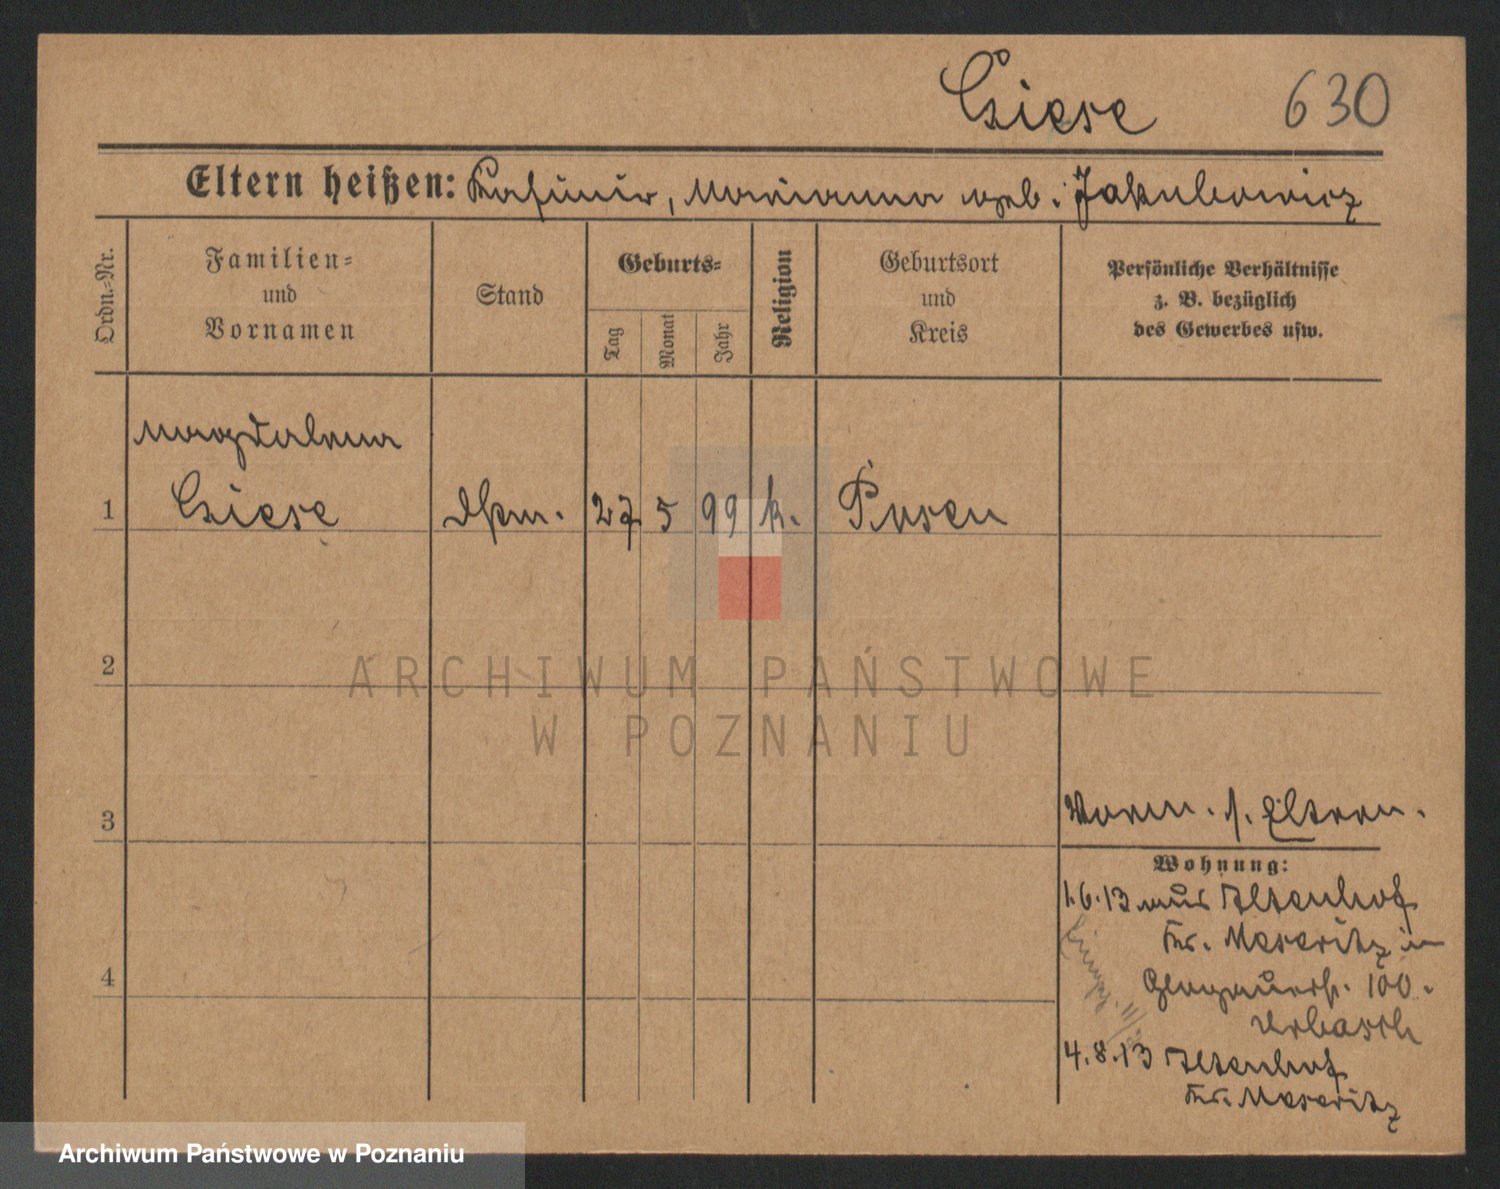 Giese 630
Eltern heißen: Kasimir, Marianna geb. Jakubowicz
Ordn.-Nr.
Familien-
und
Vornamen
Stand
Geburts-
Tag
Monat
Jahr
Religion
Geburtsort
und
Kreis
Persönliche Verhältnisse
z. B. bezüglich
des Gewerbes usw.
Magdalena
1 Giese 27 5 99 k. Posen
2
3
4
Vorm. s. Eltern.
Wohnung:
1.6.13 aus Altenhof
Kr. Meseritz in
Glogauerstr. 100.
Urbasch
4.8.13 Altenhof
Kr. Meseritz
ARCHIWUM PAŃSTWOWE
W POZNANIU
Archiwum Państwowe w Poznaniu